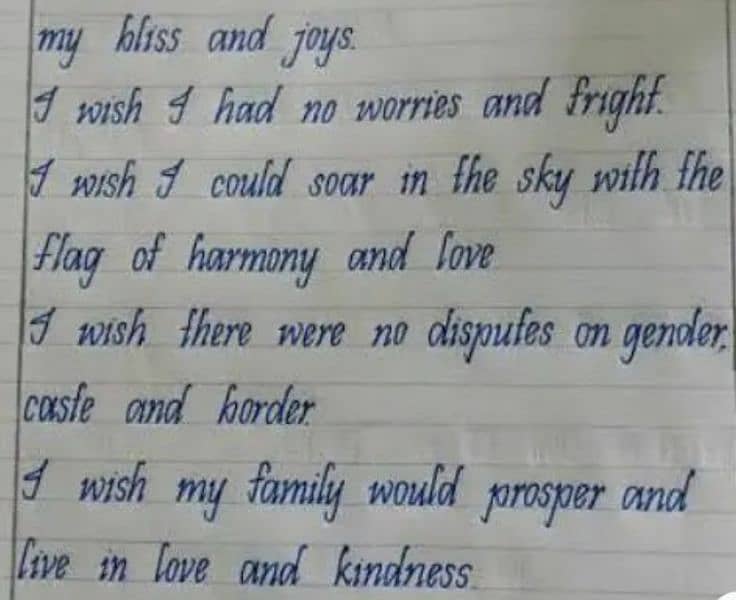 my bliss and joys.
I wish I had no worries and fright.
I wish I could soar in the sky with the
flag of harmony and love
I wish there were no disputes on gender,
caste and border.
I wish my family would prosper and
live in love and kindness.